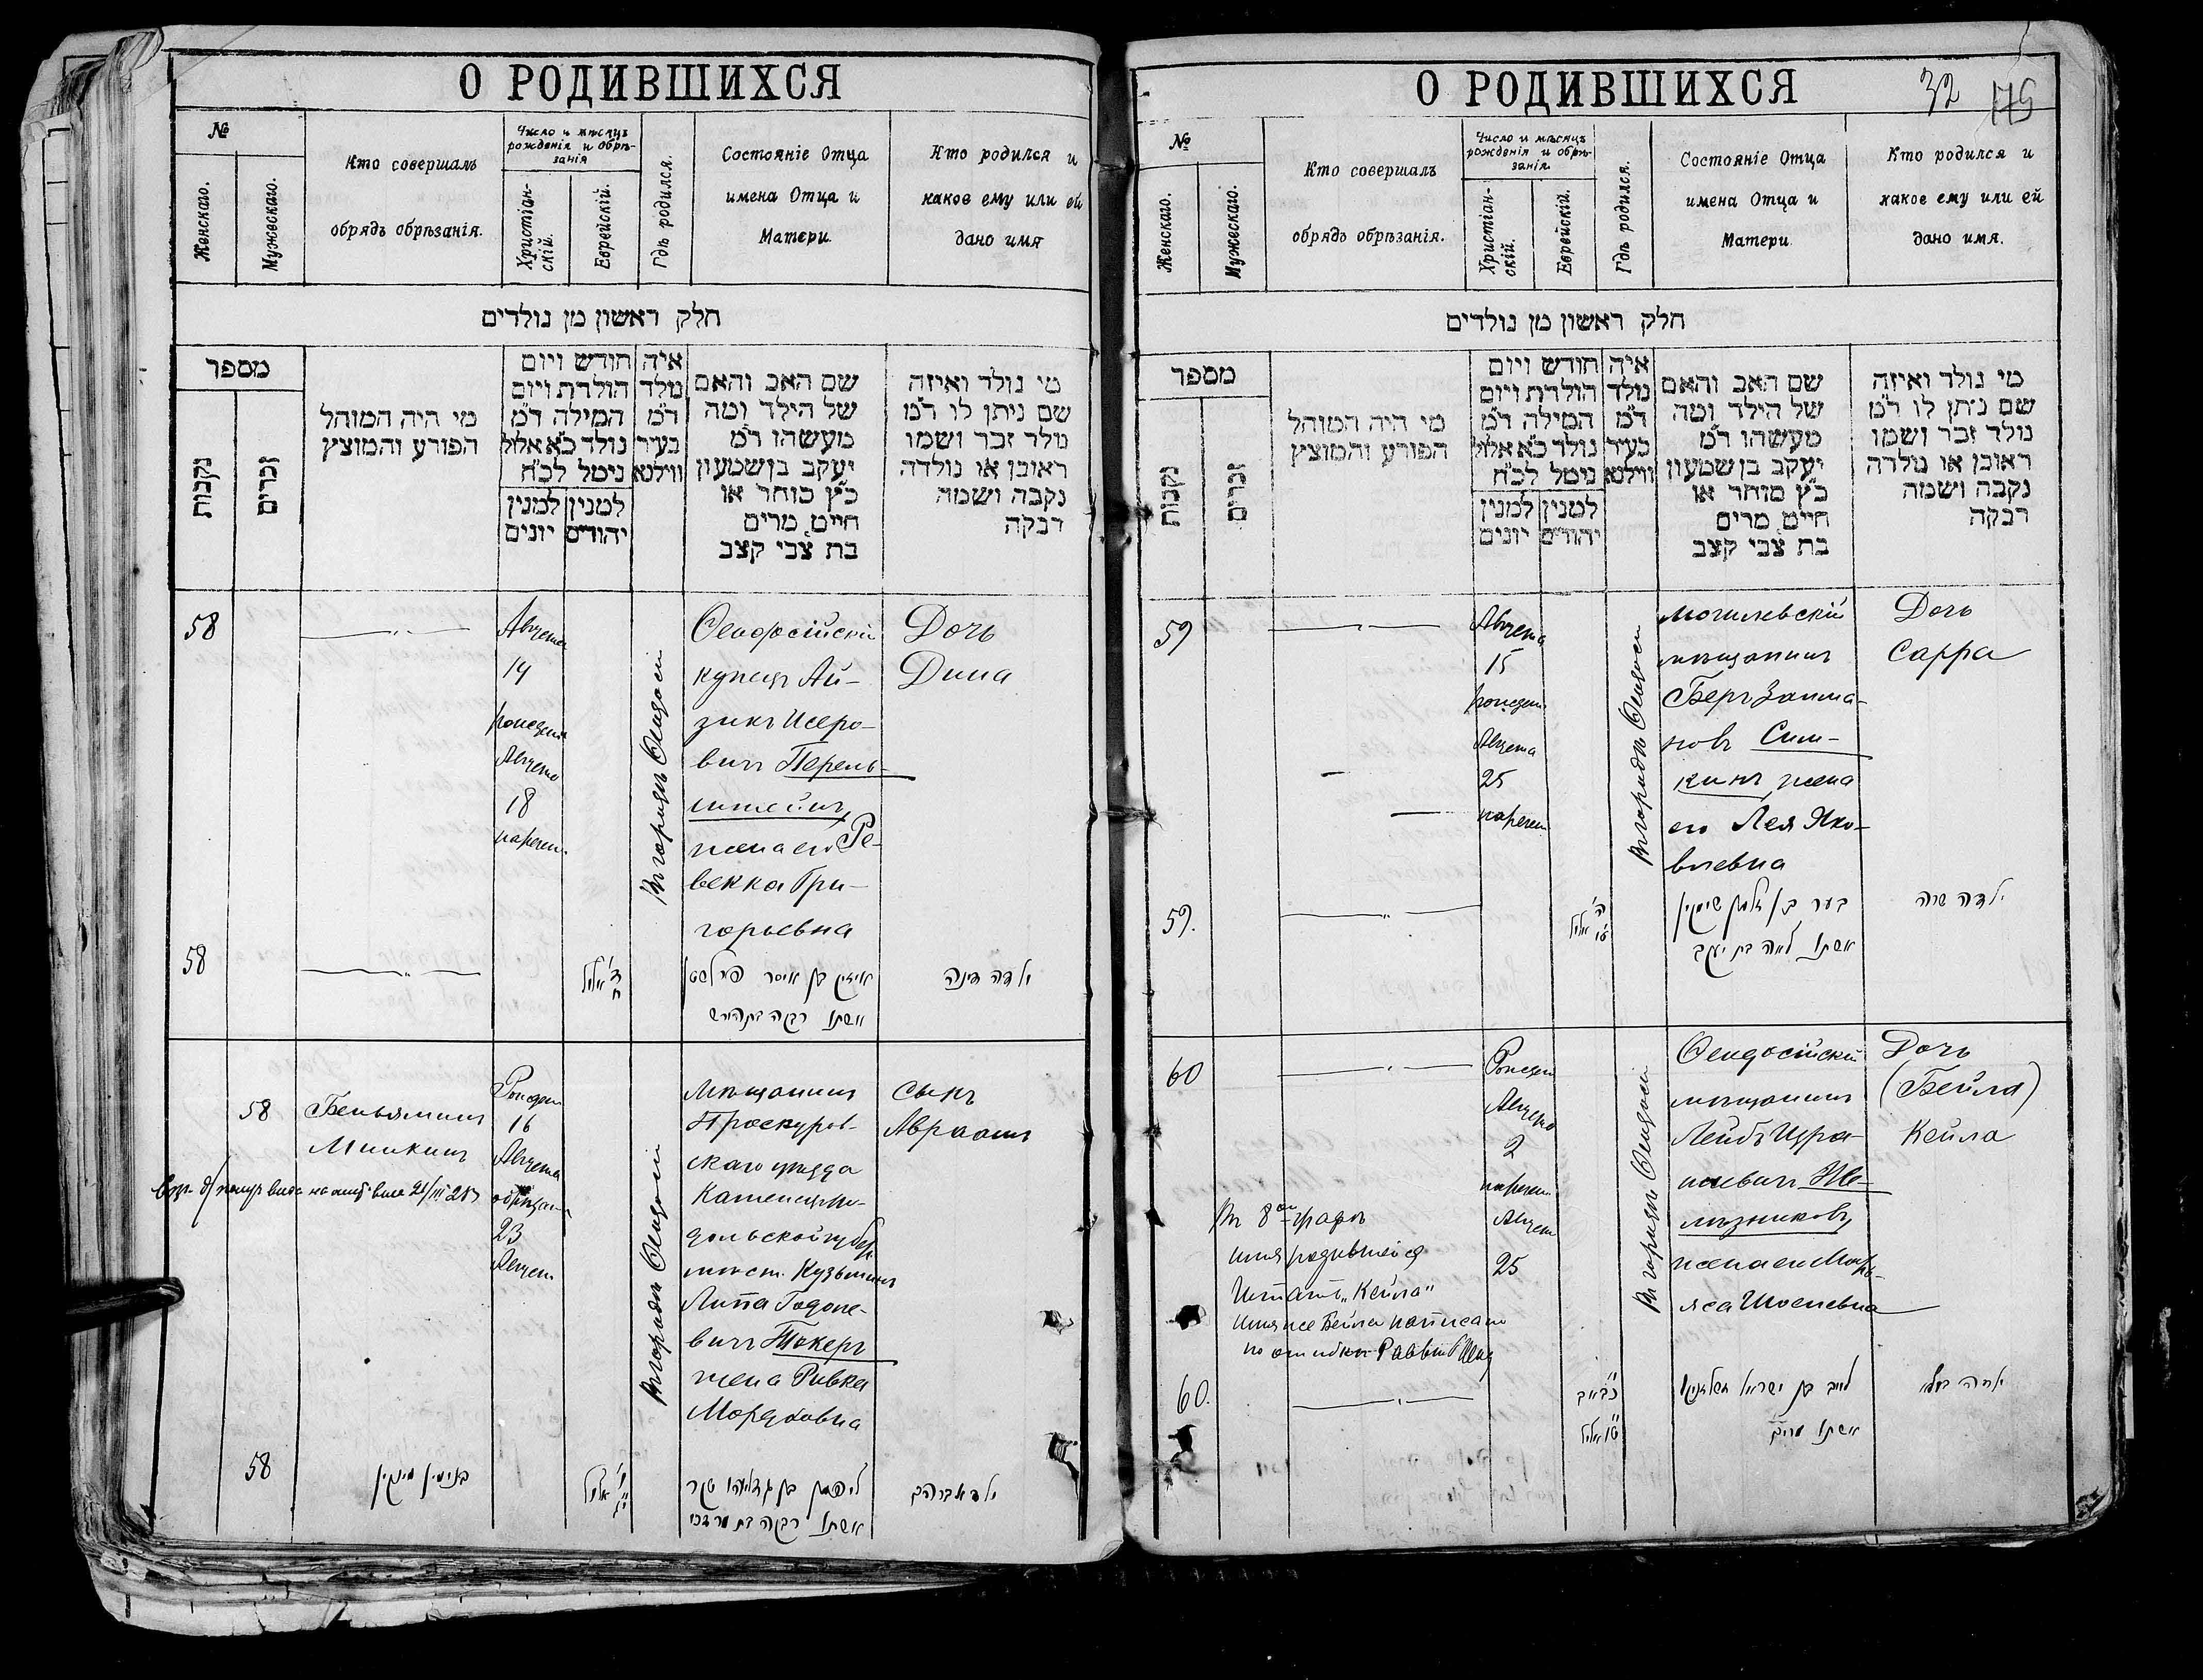 О РОДИВШИХСЯ
№
Женскаго.
Мужескаго.
Кто совершалъ
обрядъ обрѣзанія.
Число и мѣсяцъ
рожденія и обрѣ-
занія
Христіан-
скій.
Еврейскій.
Гдѣ родился.
Состояніе Отца
имена Отца и
Матери
Кто родился и
какое ему или ей
дано имя
חלק ראשון מן נולדים
מספר
נקבות
זכרים
מי היה המוהל
הפורע והמוצץ
חודש ויום
הולדת ויום
המילה ד״מ
נולד כ״א אלול
נימל לכ״ח
למנין יהודים
למנין יונים
איה
נולד
ד״מ
בעיר
ווילנא
שם האב והאם
של הילד ומה
מעשהו ד״מ
יעקב בן שמעון
כ״ץ סוחר או
חייט מרים
בת צבי קצב
מי נולד ואיזה
שם ניתן לו ד״מ
נולד זכר ושמו
ראובן או נולדה
נקבה ושמה
רבקה
58
Августа
14
рожден.
Августа
18
наречен.
Въ городѣ Ѳеодосіи
Ѳеодосійскій
купецъ Ай-
зикъ Исеро-
вичъ Перель-
штейнъ,
жена его Ре-
векка Гри-
горьевна
Дочь
Дина
58
אייזיק בן איסר פערלשטיין
אשתו רבקה בת הירש
ילדה דינה
58
Беньяминъ
Минкинъ
Рожден
16
Августа
обрѣзан
23
Август
Въ городѣ Ѳеодосіи
Мѣщанинъ
Проскуров-
скаго уѣзда
Каменецъ-по-
дольской губер.
мѣст. Кузьминъ
Липа Годоле-
вичъ Токеръ
жена Ривка
Мордковна
Сынъ
Авраамъ
58
בנימין מינקין
ליפמן בן גדליהו טקר
אשתו רבקה בת מרדכי
ילד אברהם
О РОДИВШИХСЯ
32
№
Женскаго.
Мужескаго.
Кто совершалъ
обрядъ обрѣзанія.
Число и мѣсяцъ
рожденія и обрѣ-
занія.
Христіан-
скій.
Еврейскій.
Гдѣ родился.
Состояніе Отца
имена Отца и
Матери
Кто родился и
какое ему или ей
дано имя.
חלק ראשון מן נולדים
מספר
נקבות
זכרים
מי היה המוהל
הפורע והמוצץ
חודש ויום
הולדת ויום
המילה ד״מ
נולד כ״א אלול
נימל לכ״ח
למנין יהודים
למנין יונים
איה
נולד
ד״מ
בעיר
ווילנא
שם האב והאם
של הילד ומה
מעשהו ד״מ
יעקב בן שמעון
כ״ץ סוחר או
חייט מרים
בת צבי קצב
מי נולד ואיזה
שם ניתן לו ד״מ
נולד זכר ושמו
ראובן או נולדה
נקבה ושמה
רבקה
59
Августа
15
рожден.
Августа
25
наречен.
Въ городѣ Ѳеодосіи
Могилевскій
мѣщанинъ
Беръ Залма-
новъ Сим-
кинъ, жена
его Лея Яко-
влевна
Дочь
Сарра
59.
בער בן זלמן שימקין
אשתו לאה בת יעקב
ילדה שרה
60
Рожден
Августа
2
наречен.
Август
25
Въ городѣ Ѳеодосіи
Ѳеодосійскій
мѣщанинъ
Лейбъ Изра-
илевичъ Же-
лѣзниковъ,
жена его Марь-
яса Шоелевна
Дочь
(Бейла)
Кейла
Въ 8ой графѣ
имя родившейся
читать „Кейла"
имя же Бейла написано
по ошибкѣ Раввинъ
60.
לייב בן ישראל
אשתו מרים